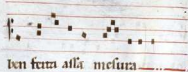 ben feita assi mesura